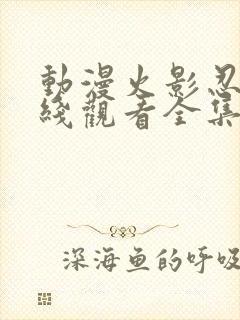 動漫火影忍
綫觀看全集
深海鱼的呼吸